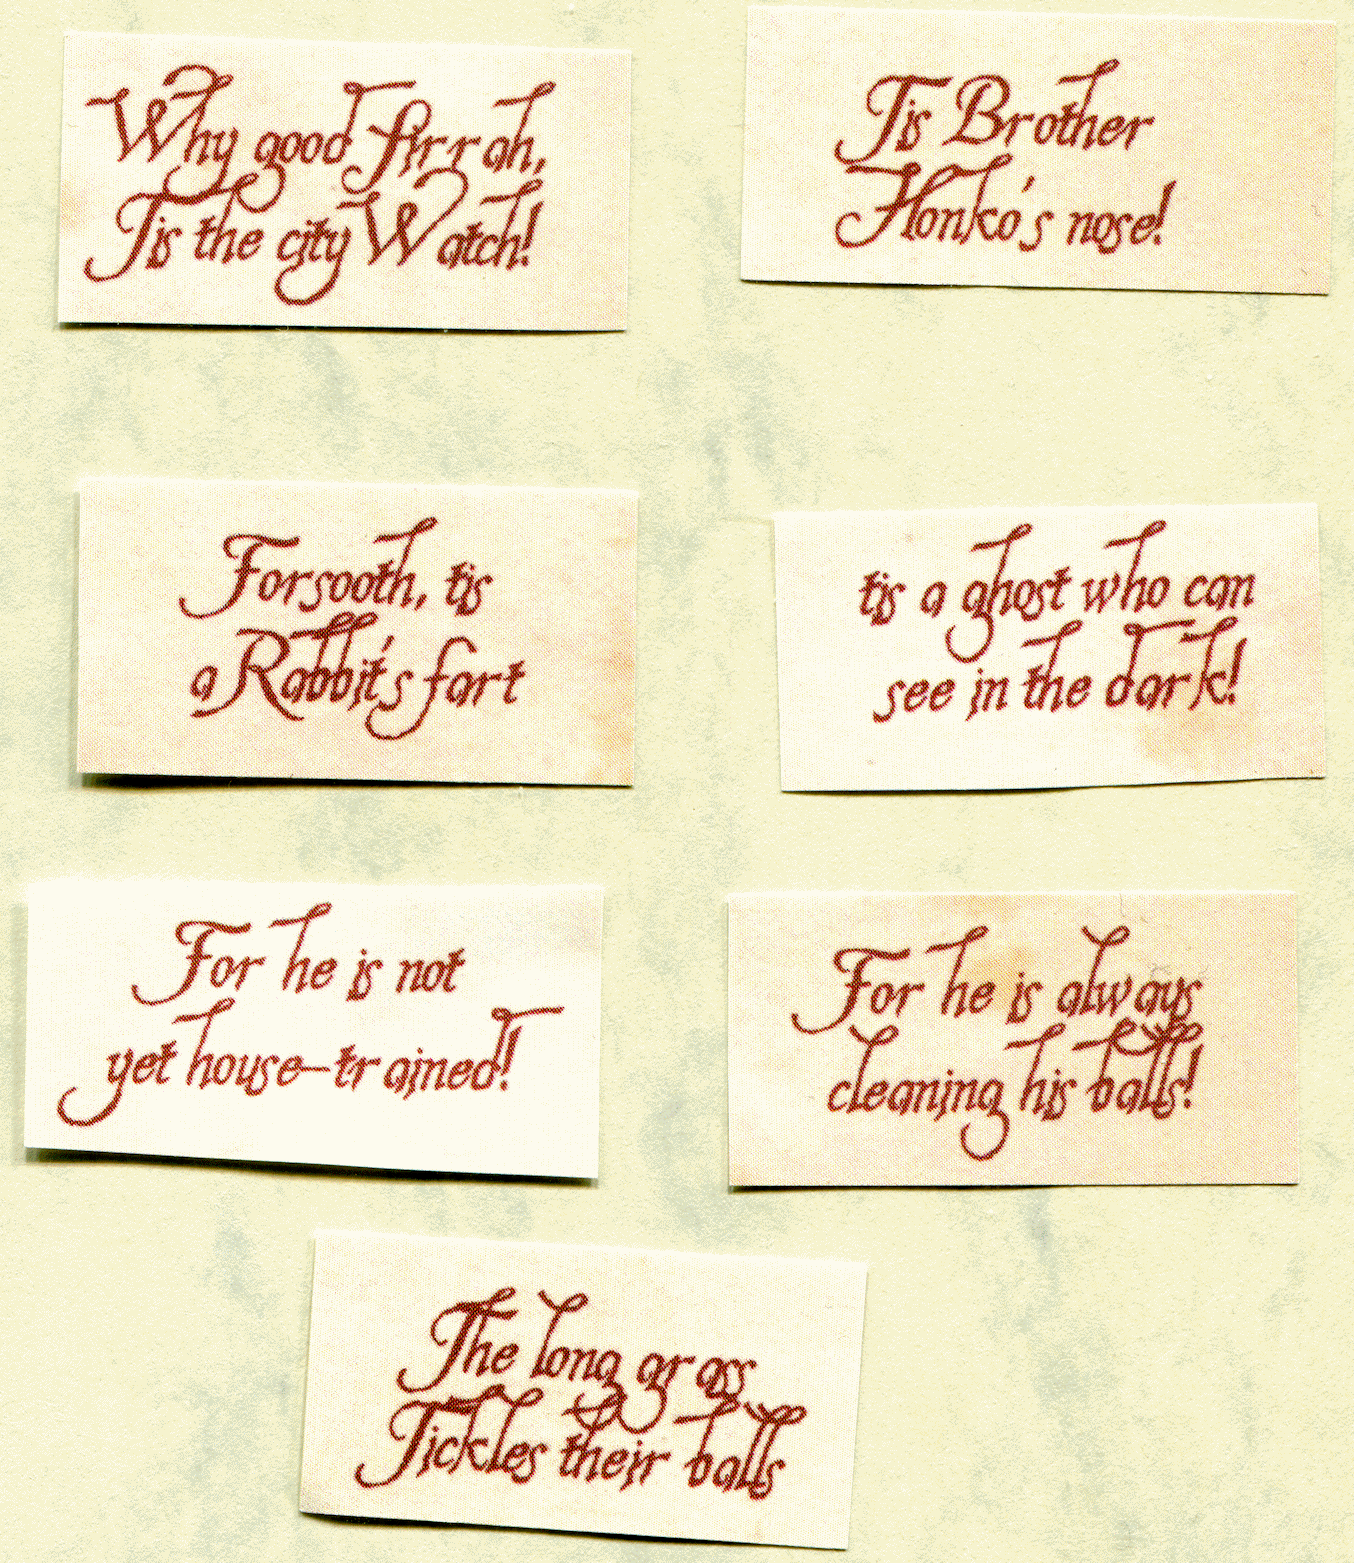 Why good sirrah,
Tis the city Watch!
Tis Brother
Honko's nose!
Forsooth, tis
a Rabbit's fart
tis a ghost who can
see in the dark!
For he is not
yet house-trained!
For he is always
cleaning his balls!
The long grass
Tickles their balls